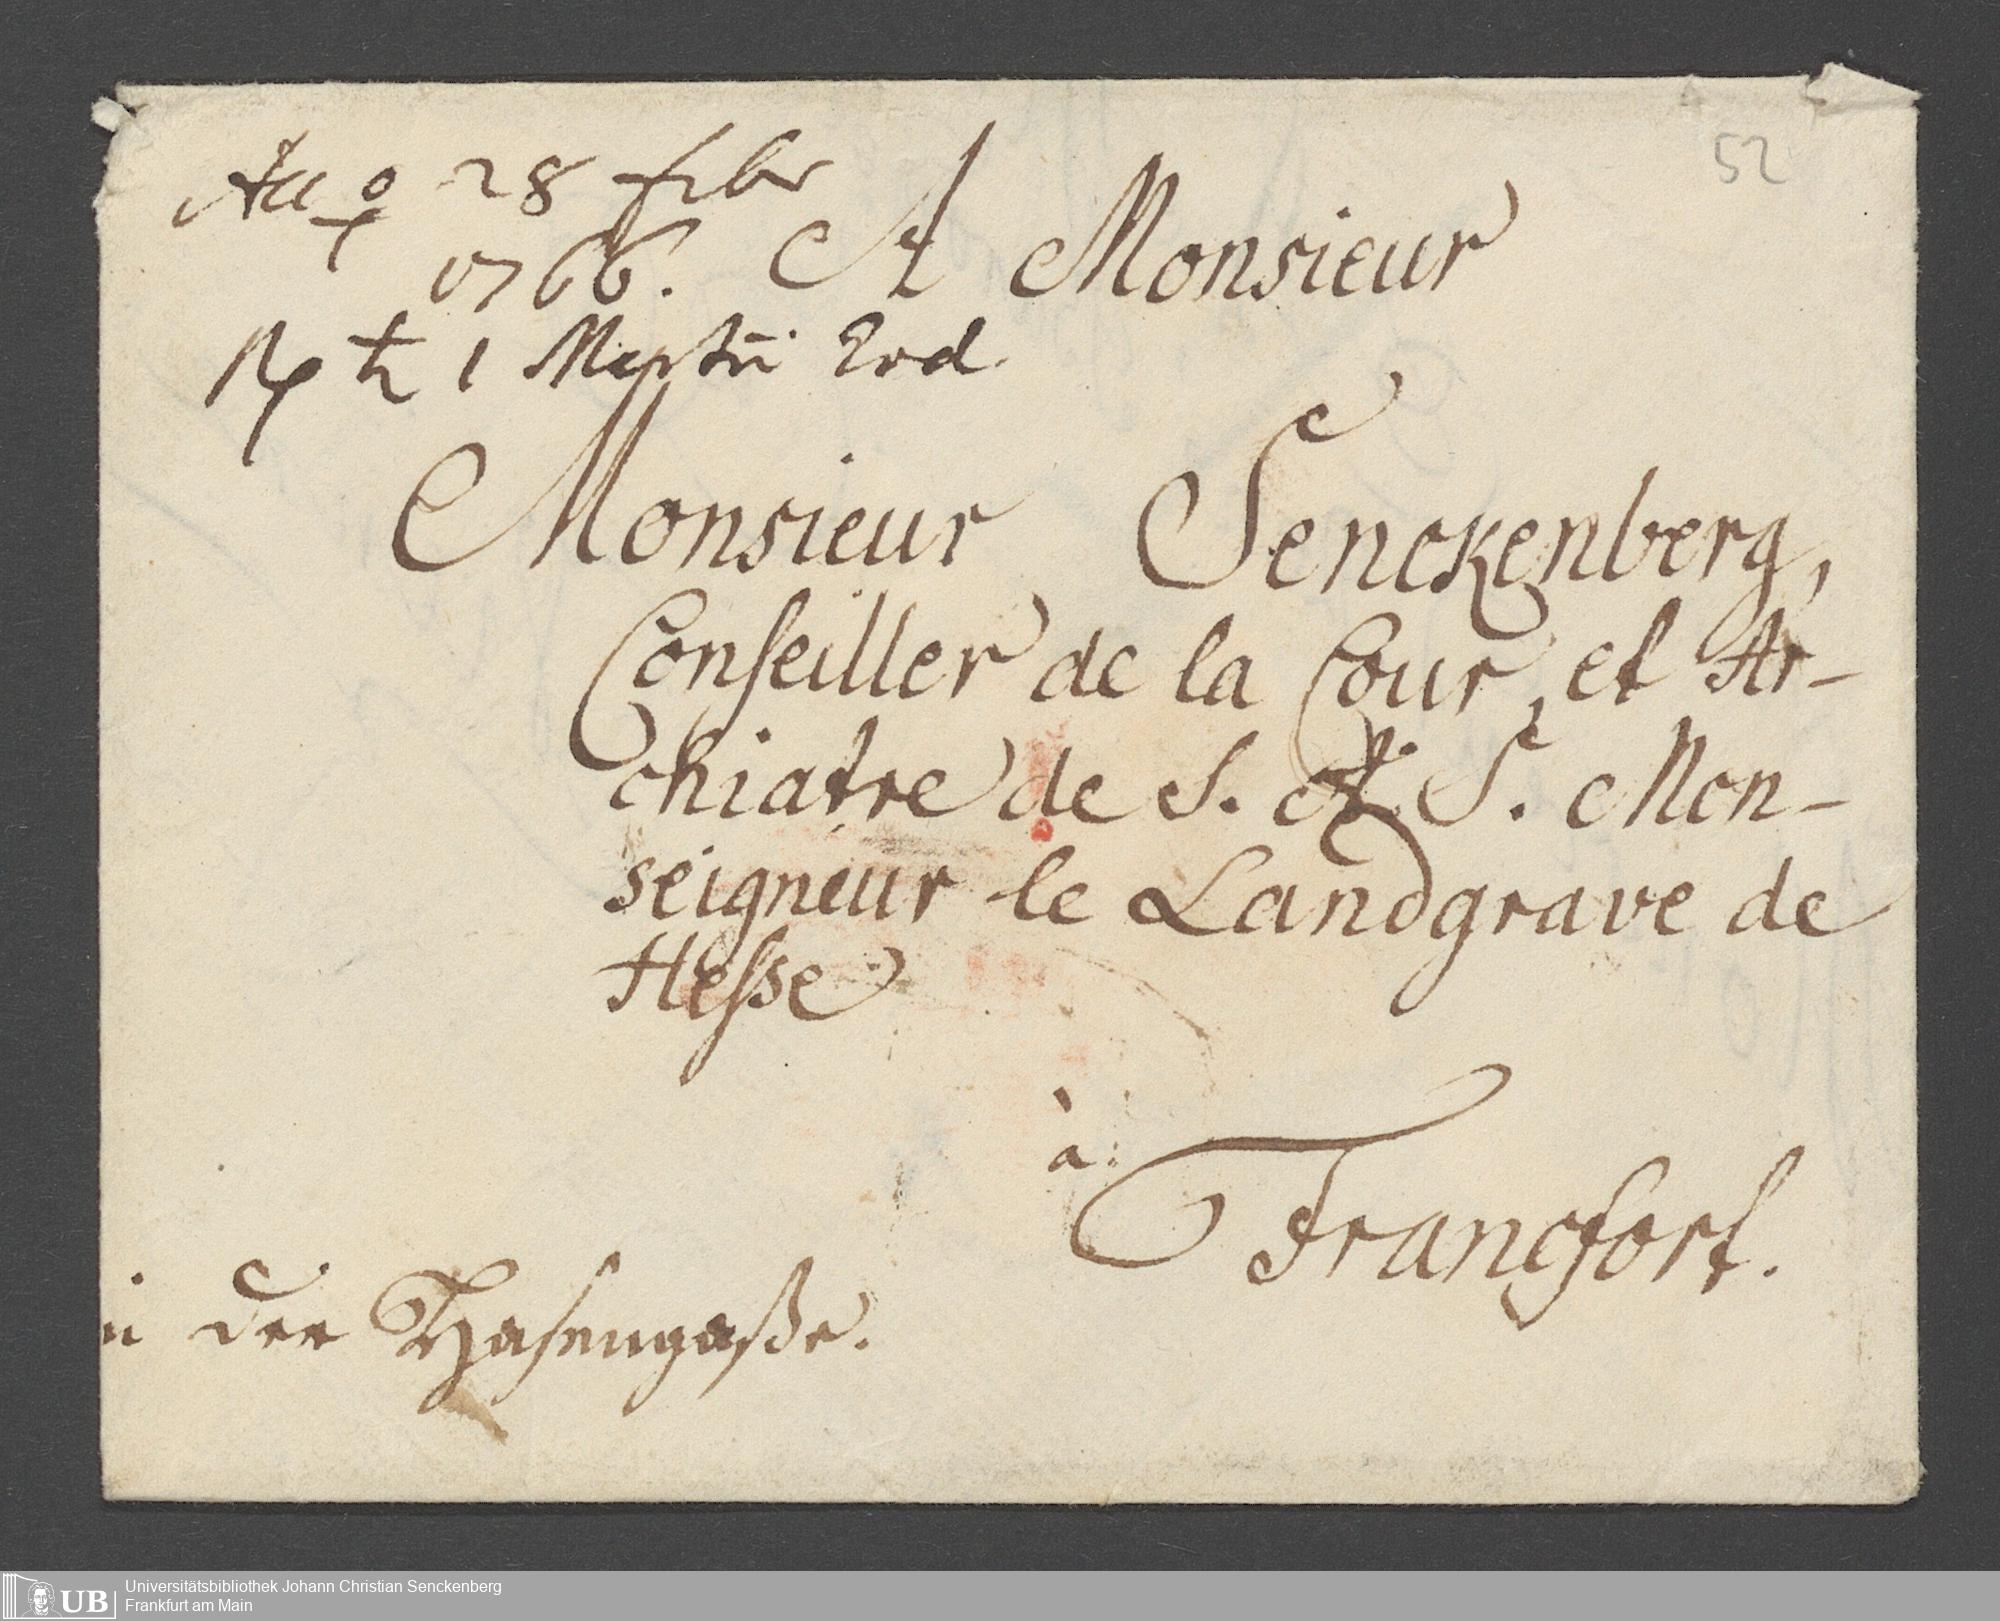 Acc ♀ 28 febr
1766.
A Monsieur
52
Rp ♄ 1 Martii
Monsieur Senckenberg,
Conseiller de la Cour, et Ar-
chiatre de S. A. S. Mon-
seigneur le Landgrave de
Hesse
à
Francfort.
in der Hasengaße.
UB
Universitätsbibliothek Johann Christian Senckenberg
Frankfurt am Main